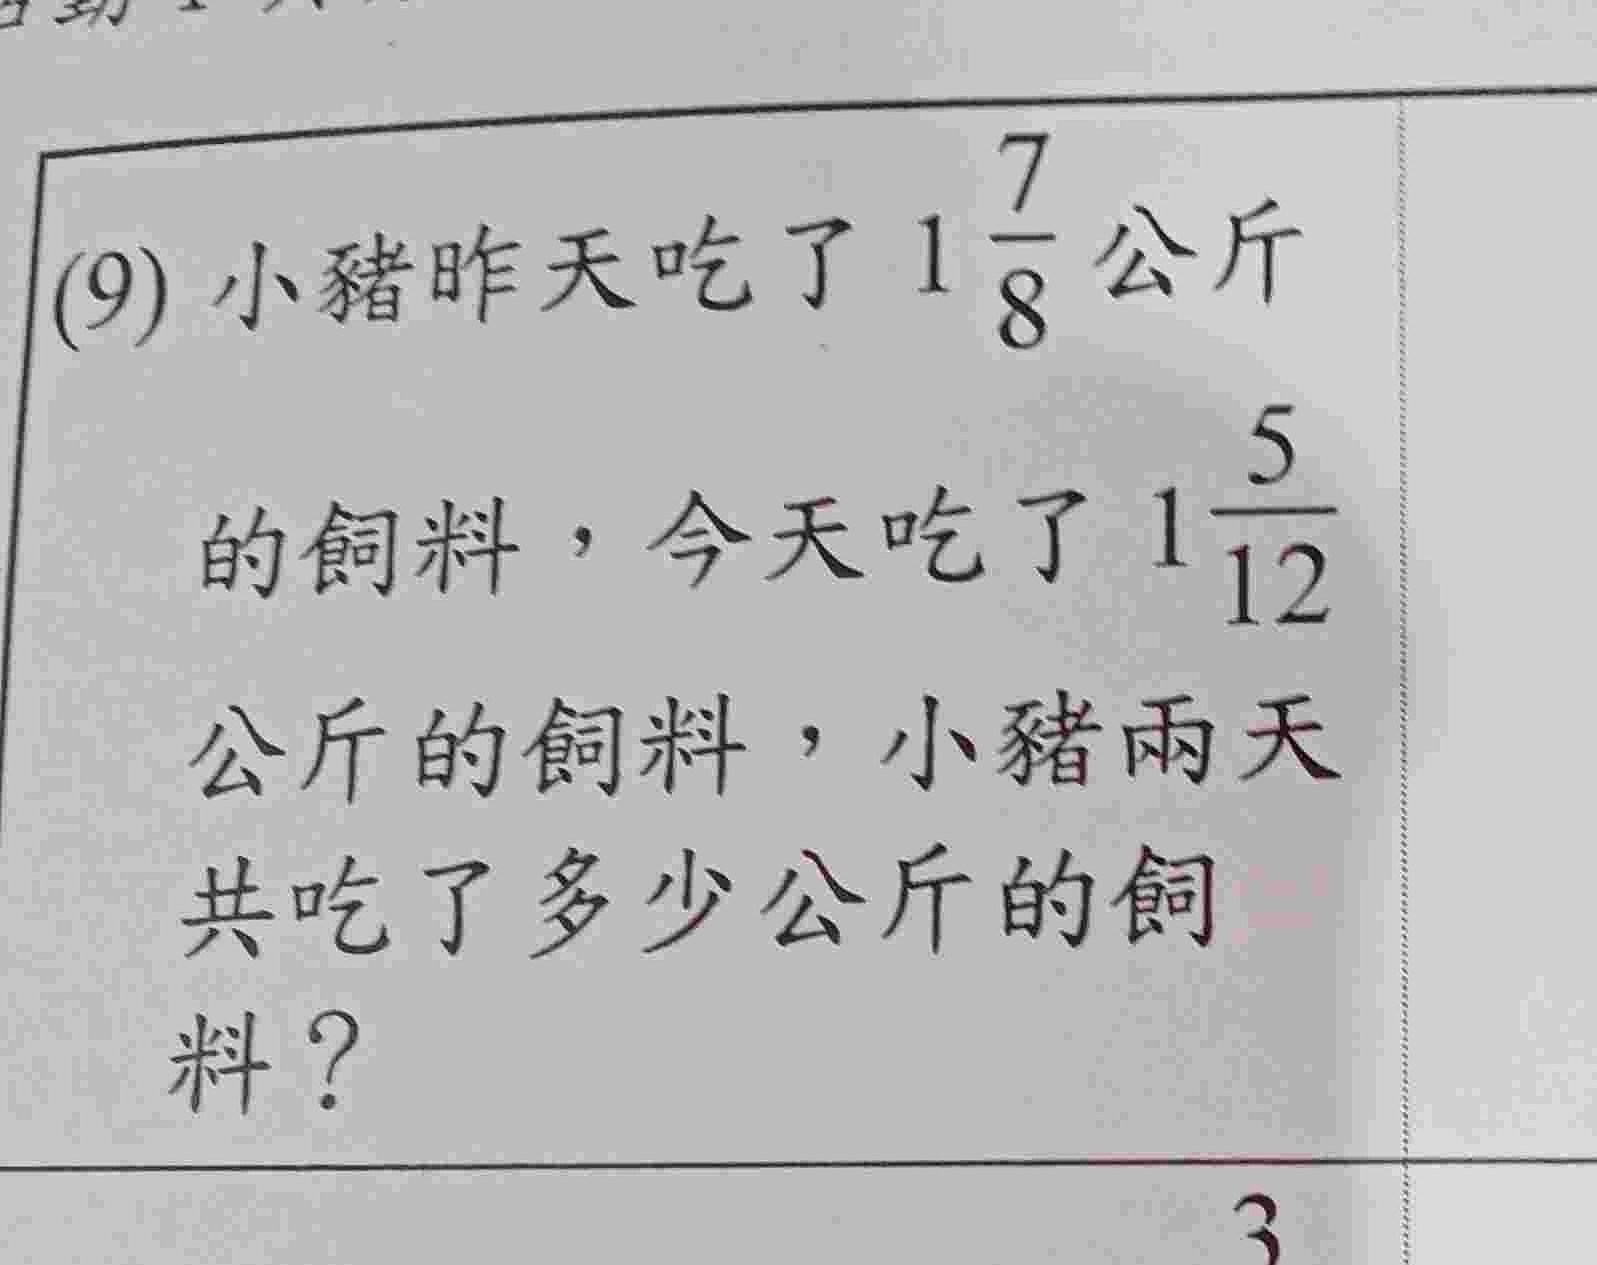 (9) 小豬昨天吃了 1 7/8 公斤
的飼料，今天吃了 1 5/12
公斤的飼料，小豬兩天
共吃了多少公斤的飼
料？
3